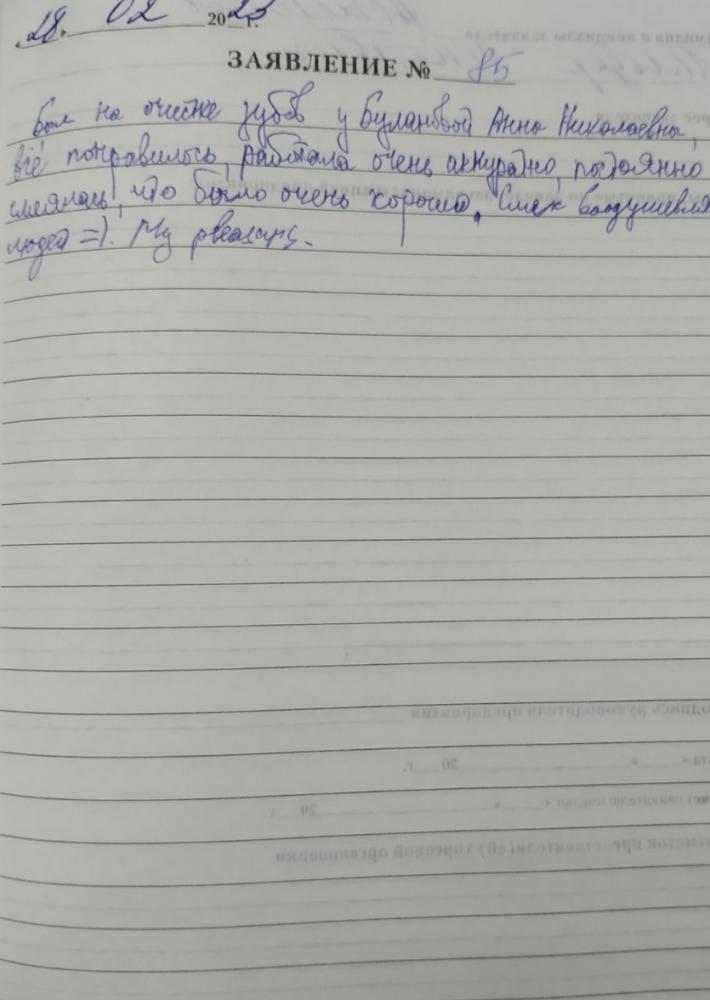 28. 02 2023г.
ЗАЯВЛЕНИЕ № 85
Был на очистке зубов у Булановой Анна Николаевна,
всё понравилось, работала очень аккуратно, постоянно
смеялась, что было очень хорошо. Смех воодушевля
людей =).